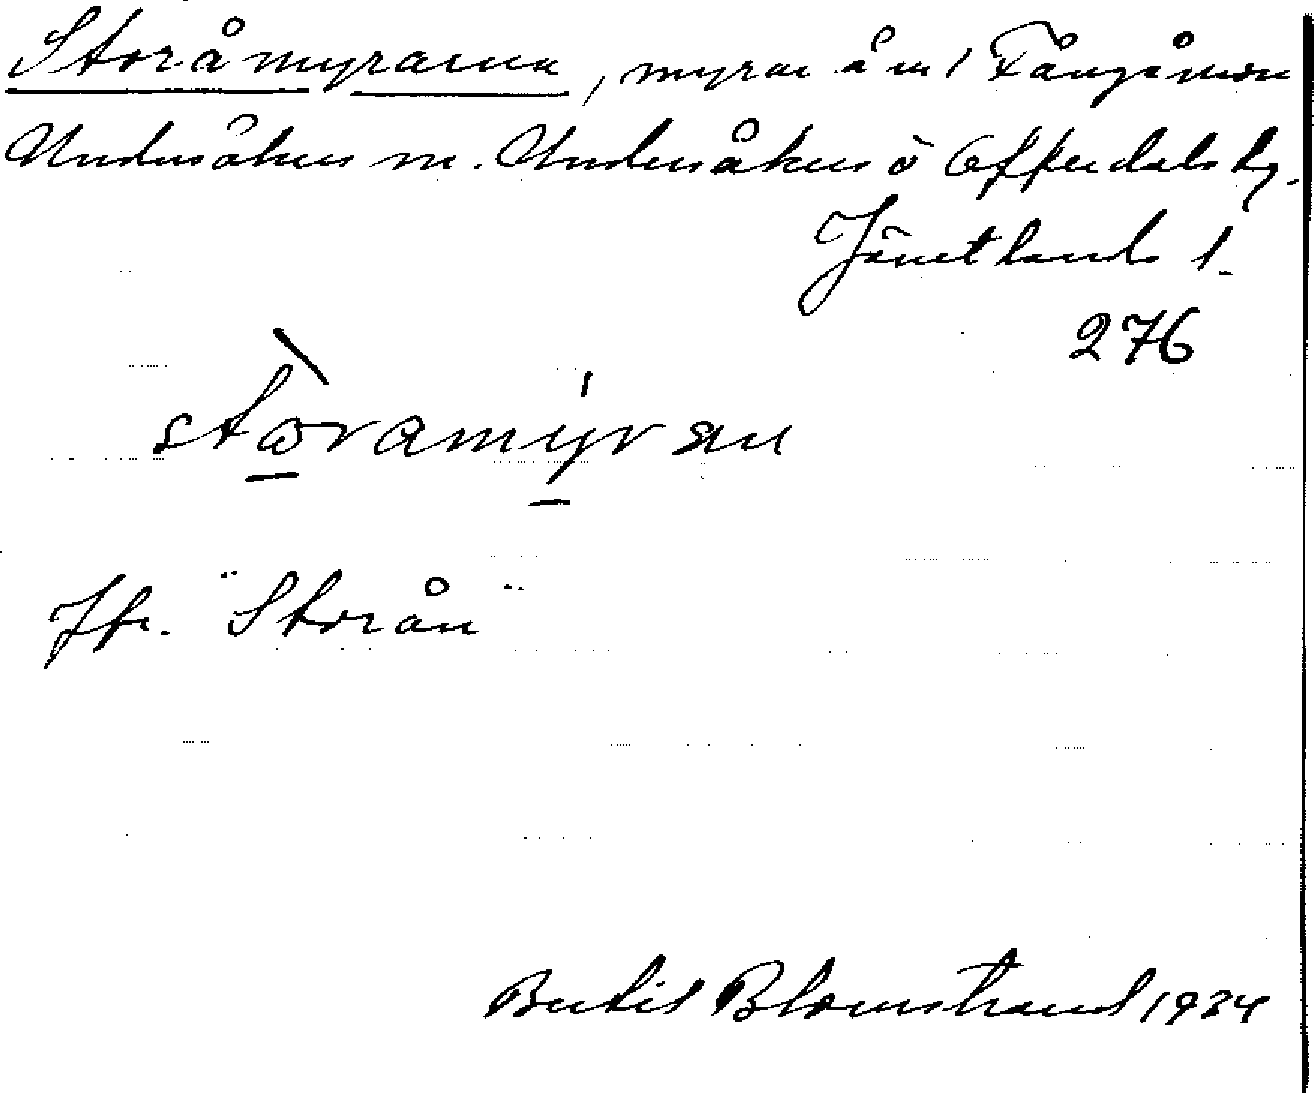 Storåmyrarna, myrar å m / Fångåmon
Undersåkers m. Undersåkers o Offerdals tg.
Jämtlands l.
276
stɷramýraɳ
Jfr. "Storån"
Bertil Blomstrand 1934